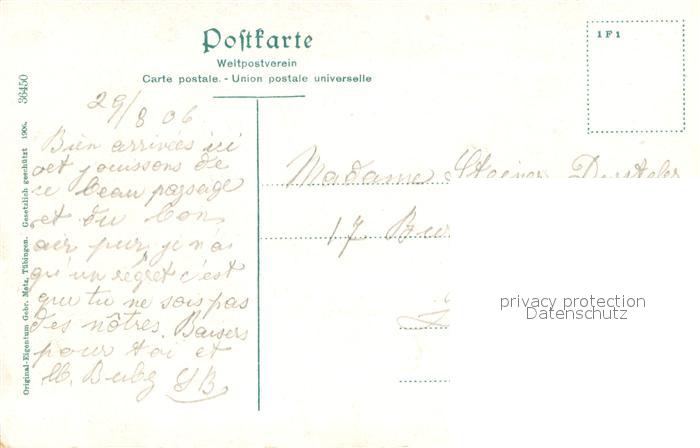 Postkarte
Weltpostverein
Carte postale. - Union postale universelle
1F1
36450
Original-Eigentum Gebr. Metz, Tübingen. Gesetzlich geschützt 1906.
29/8 06
Bien arrivées ici
et jouissons de
ce beau paysage
et du bon
air pur, je n'ai
qu'un regret c'est
que tu ne sois pas
des nôtres. Baisers
pour toi et
SB
Madame Steiner
17
privacy protection
Datenschutz